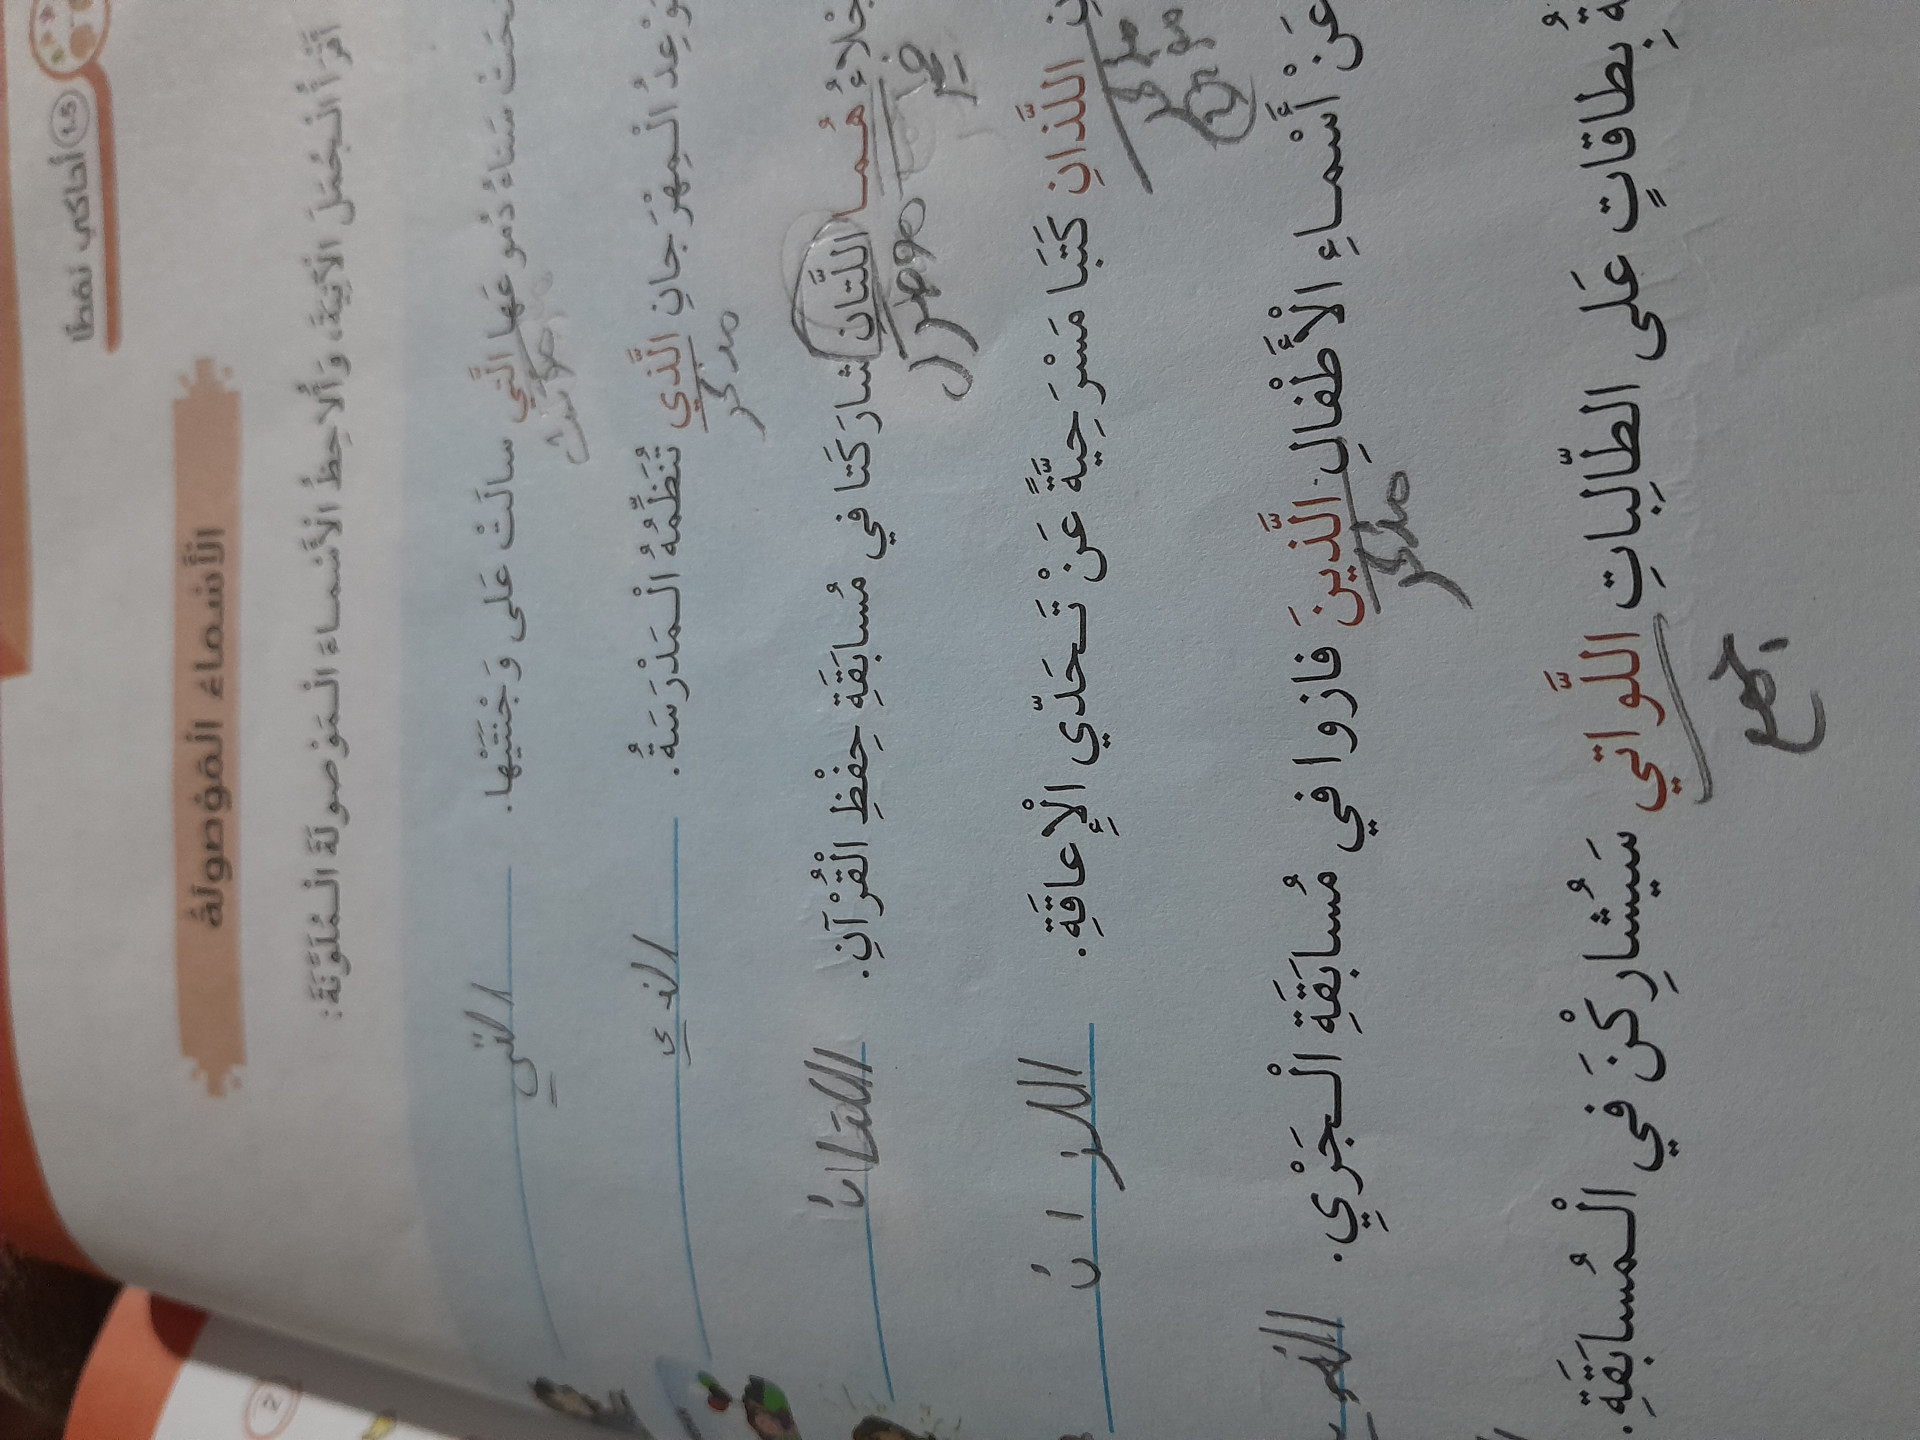 1.5 أحاكي نمطا
الأسماء الموصولة
أقرأ الجمل الآتية، وألاحظ الأسماء الموصولة الملونة:
سناء دموعها التي سالت على وجنتيها.
مؤنث
التي
موعد المهرجان الذي تنظمه المدرسة.
مذكر
الذي
هما اللتان شاركتا في مسابقة حفظ القرآن.
خبر
موصول
اللتان
اللذان كتبا مسرحية عن تحدي الإعاقة.
مذكر
اللذان
عن أسماء الأطفال الذين فازوا في مسابقة الجري.
مذكر
بطاقات على الطالبات اللواتي سيشاركن في المسابقة.
جمع
2